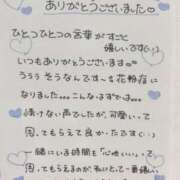 ありがとうございました♡
ひとつひとつの言葉がすごく
嬉しいです(:_;)
いつもありがとうございます
うぅぅ そうなんです〜ぅ 花粉症に
なりました… こんなはずでは…
情けない声でしたが、可愛い〜て
思ってもらえて良かったです(:_;)
一緒にいる時間も「心地いい」って
思ってもらえるのが、私にとって一番嬉しい